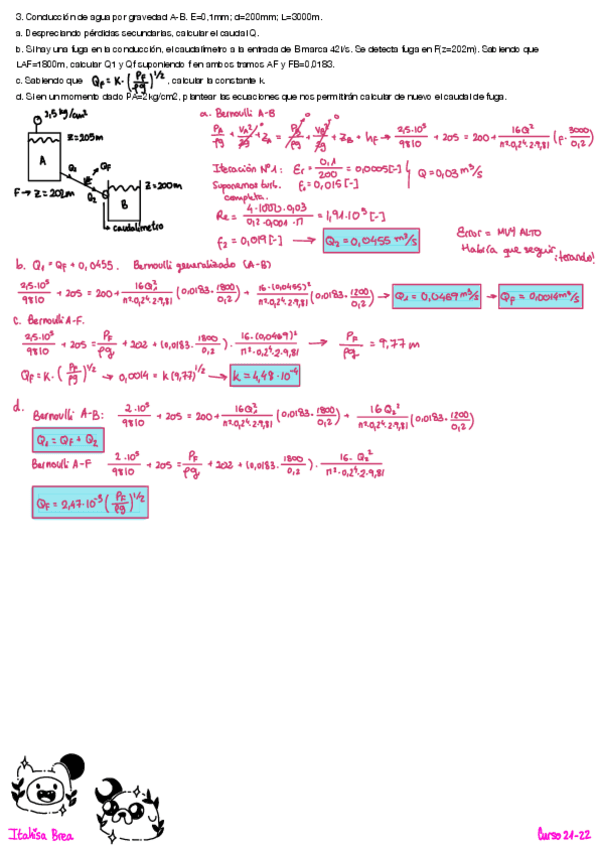 3. Conducción de agua por gravedad A-B. E=0,1mm; d=200mm; L=3000m.
a. Despreciando pérdidas secundarias, calcular el caudal Q.
b. Si hay una fuga en la conducción, el caudalímetro a la entrada de B marca 42l/s. Se detecta fuga en F(z=202m). Sabiendo que
LAF=1800m, calcular Q1 y Qf suponiendo f en ambos tramos AF y FB=0,0183.
c. Sabiendo que QF = K·(PF/ρg)^1/2, calcular la constante k.
d. Si en un momento dado PA=2kg/cm2, plantear las ecuaciones que nos permitirán calcular de nuevo el caudal de fuga.
2,5 kg/cm²
Z=205m
A
Q1
QF
F → Z=202m
Q2
B
Z=200m
caudalímetro
a. Bernoulli A-B
PA/ρg + VA²/2g + ZA = PB/ρg + VB²/2g + ZB + hF → 2,5·10⁵/9810 + 205 = 200 + 16Q²/π²·0,2⁴·2·9,81 (f·3000/0,2)
Iteración Nº1: Er = 0,1/200 = 0,0005[-]
Suponemos turb. completa. f1 = 0,015[-]
Q = 0,03 m³/s
Re = 4·1000·0,03/0,2·0,001·π = 1,91·10⁵ [-]
f2 = 0,019[-] → Q2 = 0,0455 m³/s
Error = MUY ALTO
Habría que seguir iterando!
b. Q1 = QF + 0,0455. Bernoulli generalizado (A-B)
2,5·10⁵/9810 + 205 = 200 + 16Q1²/π²·0,2⁴·2·9,81 (0,0183·1800/0,2) + 16·(0,0455)²/π²·0,2⁴·2·9,81 (0,0183·1200/0,2) → Q1 = 0,0469 m³/s → QF = 0,0014 m³/s
c. Bernoulli A-F.
2,5·10⁵/9810 + 205 = PF/ρg + 202 + (0,0183·1800/0,2)·16·(0,0469)²/π²·0,2⁴·2·9,81 → PF/ρg = 9,77 m
QF = K·(PF/ρg)^1/2 → 0,0014 = k(9,77)^1/2 → k = 4,48·10⁻⁴
d.
Bernoulli A-B: 2·10⁵/9810 + 205 = 200 + 16Q1²/π²·0,2⁴·2·9,81 (0,0183·1800/0,2) + 16Q2²/π²·0,2⁴·2·9,81 (0,0183·1200/0,2)
Q1 = QF + Q2
Bernoulli A-F 2·10⁵/9810 + 205 = PF/ρg + 202 + (0,0183·1800/0,2)·16·Q2²/π²·0,2⁴·2·9,81
QF = 2,47·10⁻³(PF/ρg)^1/2
Itahisa Brea
Curso 21-22